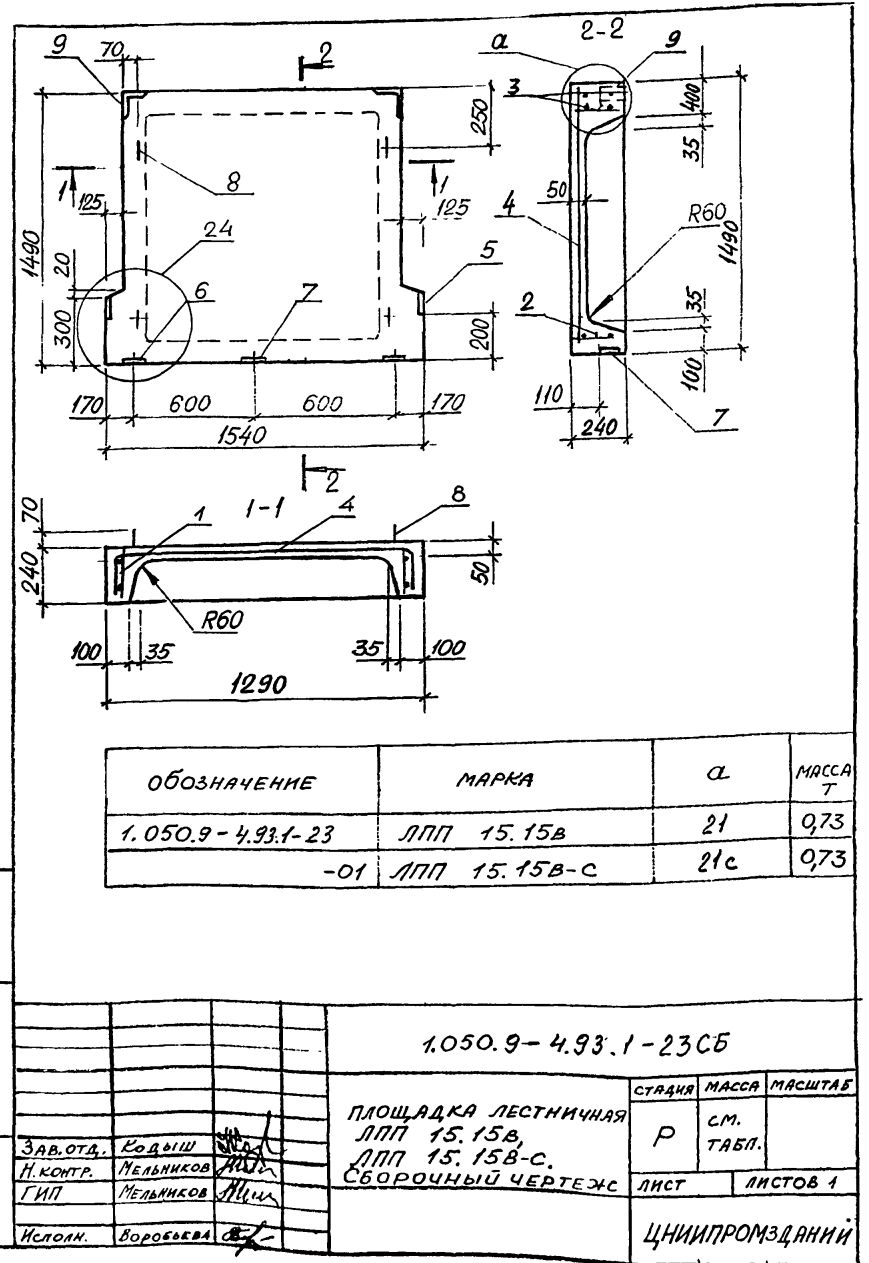 9
70
2
2
а
2-2
9
3
400
35
250
1490
1
8
1
125
24
125
4
50
R60
1490
20
6
7
5
300
200
2
35
100
170
600
600
170
1540
110
240
7
1-1
70
1
4
8
240
50
R60
100
35
35
100
1290
ОБОЗНАЧЕНИЕ МАРКА а МАССА Т
1.050.9-4.93.1-23 ЛПП 15.15в 21 0,73
-01 ЛПП 15.15в-с 21с 0,73
1.050.9-4.93.1-23СБ
ПЛОЩАДКА ЛЕСТНИЧНАЯ
ЛПП 15.15в,
ЛПП 15.15в-с.
СБОРОЧНЫЙ ЧЕРТЕЖ
СТАДИЯ МАССА МАСШТАБ
Р СМ. ТАБЛ.
ЛИСТ ЛИСТОВ 1
ЦНИИПРОМЗДАНИЙ
ЗАВ.ОТД. КОДЫШ
Н.КОНТР. МЕЛЬНИКОВ
ГИП МЕЛЬНИКОВ
ИСПОЛН. ВОРОБЬЕВА